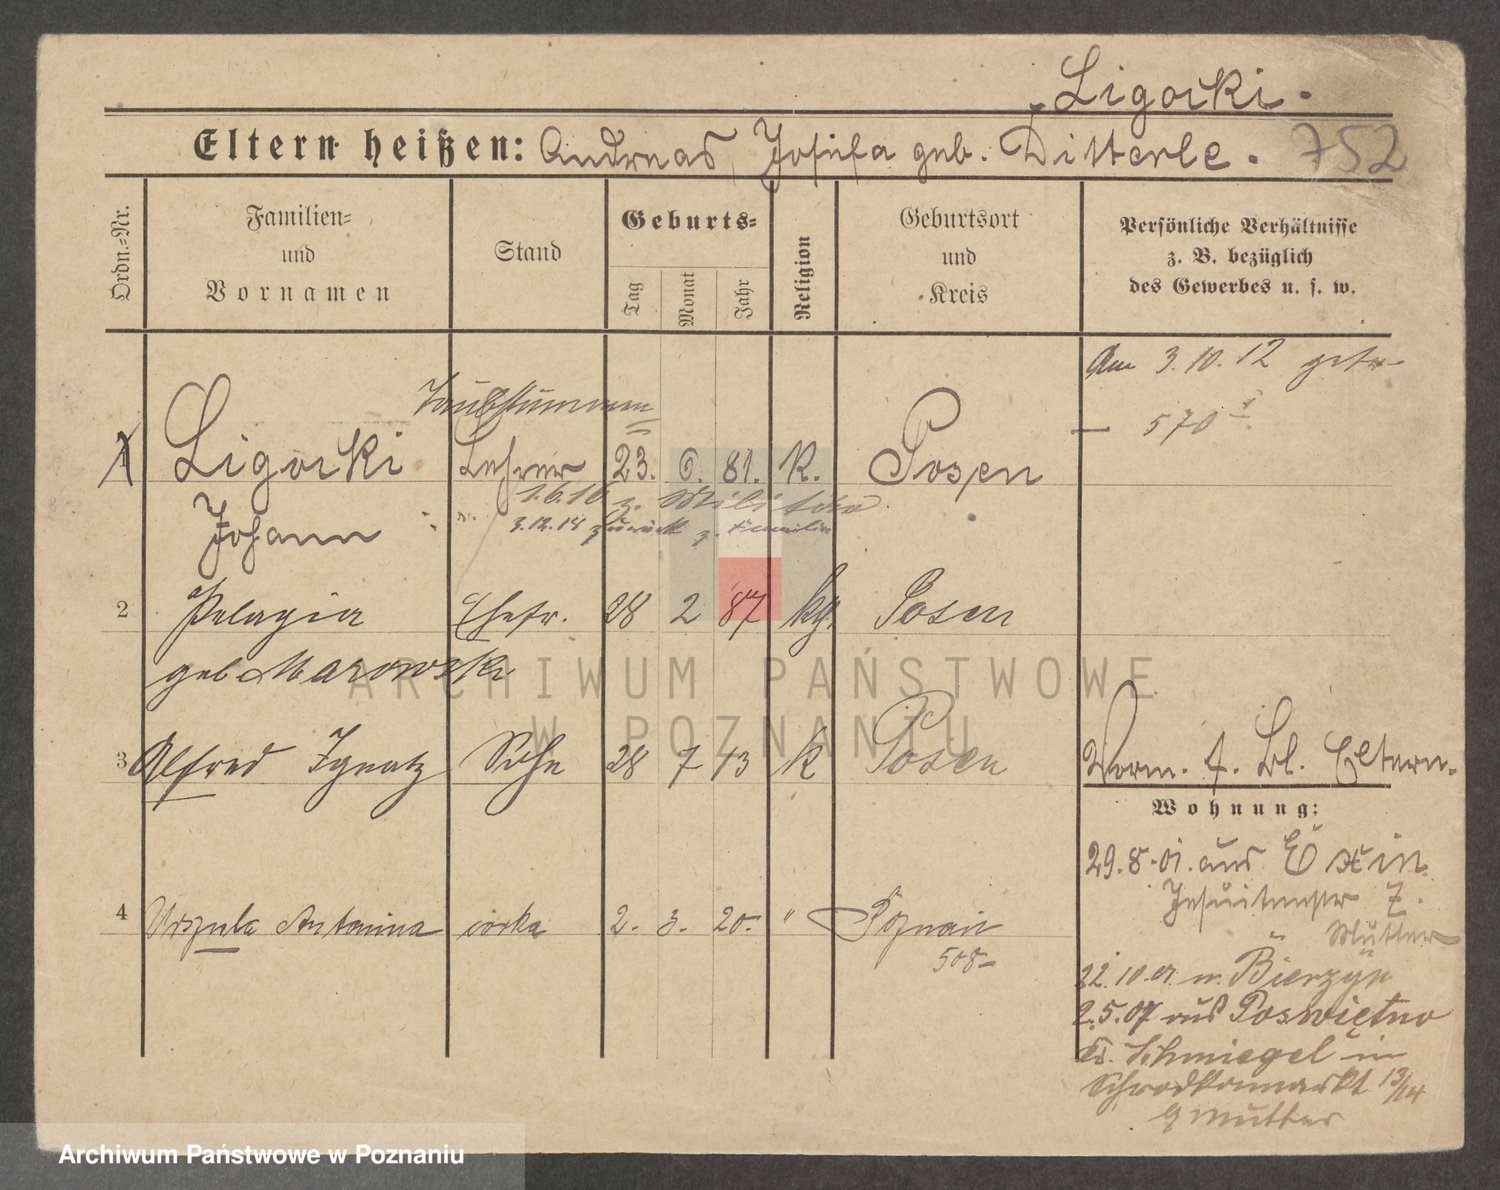 Ligocki.
Eltern heißen: Andreas, Josefa geb. Ditterle. 752
Ordn.=Nr.
Familien=
und
Vornamen
Stand
Geburts=
Tag
Monat
Jahr
Religion
Geburtsort
und
Kreis
Persönliche Verhältnisse
z. B. bezüglich
des Gewerbes u. s. w.
Am 3.10.12 getr.
570
Taubstummen
1 Ligocki Lehrer 23. 6. 81. K. Posen
1.6.16 z. Militär
Johann 3.12.18 zurück z. Familie
2 Pelagia Ehefr. 28 2 87 kg. Posen
geb. Marowski
3 Alfred Ignatz Sohn 28 7 13 k Posen
Vorm. f. Bl. Eltern.
Wohnung:
29.8.01. aus Exin
Jesuitenstr 7.
Mutter
4 Urszula Antonina córka 2. 3. 20. " Poznań
508
22.10.01 n. Bierzyn
2.5.07 aus Poswiętno
Kr. Schmiegel in
Schrodkamarkt 13/14
Mutter
ARCHIWUM PAŃSTWOWE
W POZNANIU
Archiwum Państwowe w Poznaniu